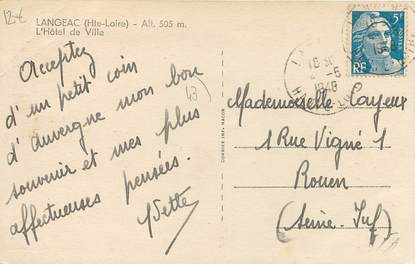 12€
LANGEAC (Hte-Loire) - Alt. 505 m.
L'Hôtel de Ville
Acceptez
d'un petit coin
d'auvergne mon bon
souvenir et mes plus
affectueuses pensées.
Yvette
13
5F
POSTES
RF
16 30
2-6
1948
Mademoiselle Cayeux
1 Rue Vigné 1
Rouen
(Seine Inf)